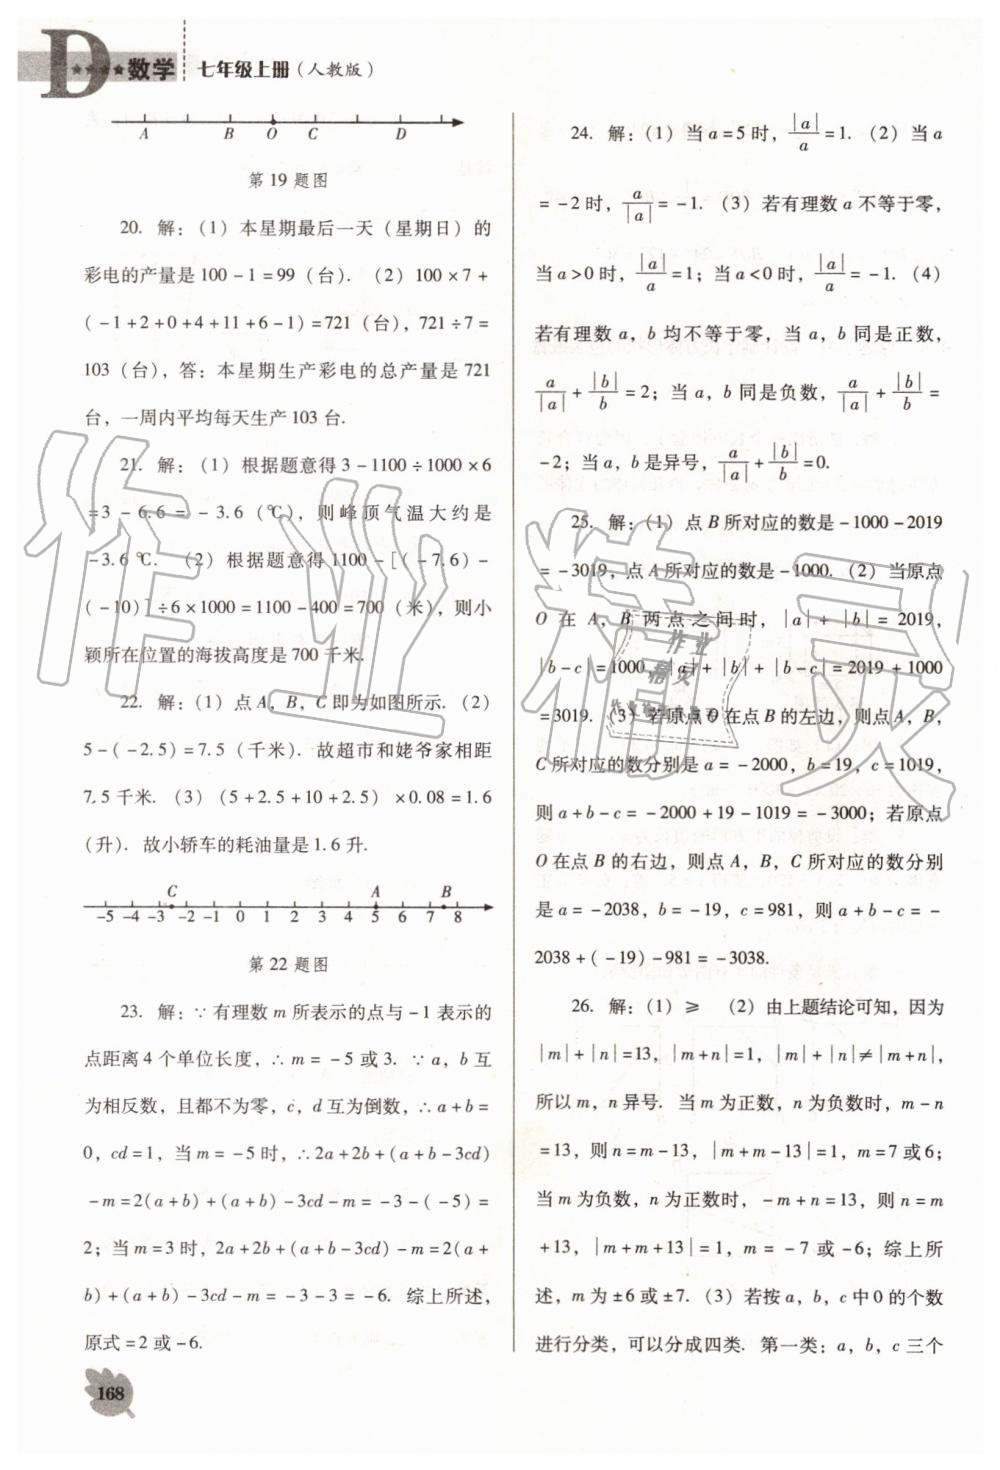 D 数学 七年级上册(人教版)
A B O C D
第19题图
20. 解:(1)本星期最后一天(星期日)的
彩电的产量是100-1=99(台). (2)100×7+
(-1+2+0+4+11+6-1)=721(台), 721÷7=
103(台), 答:本星期生产彩电的总产量是721
台, 一周内平均每天生产103台.
21. 解:(1)根据题意得3-1100÷1000×6
=3-6.6=-3.6(℃), 则峰顶气温大约是
-3.6℃. (2)根据题意得1100-[(-7.6)-
(-10)]÷6×1000=1100-400=700(米), 则小
颖所在位置的海拔高度是700千米.
22. 解:(1)点A, B, C即为如图所示. (2)
5-(-2.5)=7.5(千米). 故超市和姥爷家相距
7.5千米. (3)(5+2.5+10+2.5)×0.08=1.6
(升). 故小轿车的耗油量是1.6升.
C A B
-5 -4 -3 -2 -1 0 1 2 3 4 5 6 7 8
第22题图
23. 解:∵有理数m所表示的点与-1表示的
点距离4个单位长度, ∴m=-5或3. ∵a, b互
为相反数, 且都不为零, c, d互为倒数, ∴a+b=
0, cd=1, 当m=-5时, ∴2a+2b+(a+b-3cd)
-m=2(a+b)+(a+b)-3cd-m=-3-(-5)=
2; 当m=3时, 2a+2b+(a+b-3cd)-m=2(a+
b)+(a+b)-3cd-m=-3-3=-6. 综上所述,
原式=2或-6.
168
24. 解:(1)当a=5时, |a|/a=1. (2)当a
=-2时, a/|a|=-1. (3)若有理数a不等于零,
当a>0时, |a|/a=1; 当a<0时, |a|/a=-1. (4)
若有理数a, b均不等于零, 当a, b同是正数,
a/|a|+|b|/b=2; 当a, b同是负数, a/|a|+|b|/b=
-2; 当a, b是异号, a/|a|+|b|/b=0.
25. 解:(1)点B所对应的数是-1000-2019
=-3019, 点A所对应的数是-1000. (2)当原点
O在A, B两点之间时, |a|+|b|=2019,
|b-c|=1000, |a|+|b|+|b-c|=2019+1000
=3019. (3)若原点O在点B的左边, 则点A, B,
C所对应的数分别是a=-2000, b=19, c=1019,
则a+b-c=-2000+19-1019=-3000; 若原点
O在点B的右边, 则点A, B, C所对应的数分别
是a=-2038, b=-19, c=981, 则a+b-c=-
2038+(-19)-981=-3038.
26. 解:(1)≥ (2)由上题结论可知, 因为
|m|+|n|=13, |m+n|=1, |m|+|n|≠|m+n|,
所以m, n异号. 当m为正数, n为负数时, m-n
=13, 则n=m-13, |m+m-13|=1, m=7或6;
当m为负数, n为正数时, -m+n=13, 则n=m
+13, |m+m+13|=1, m=-7或-6; 综上所
述, m为±6或±7. (3)若按a, b, c中0的个数
进行分类, 可以分成四类. 第一类:a, b, c三个
作业精灵
作业
精灵